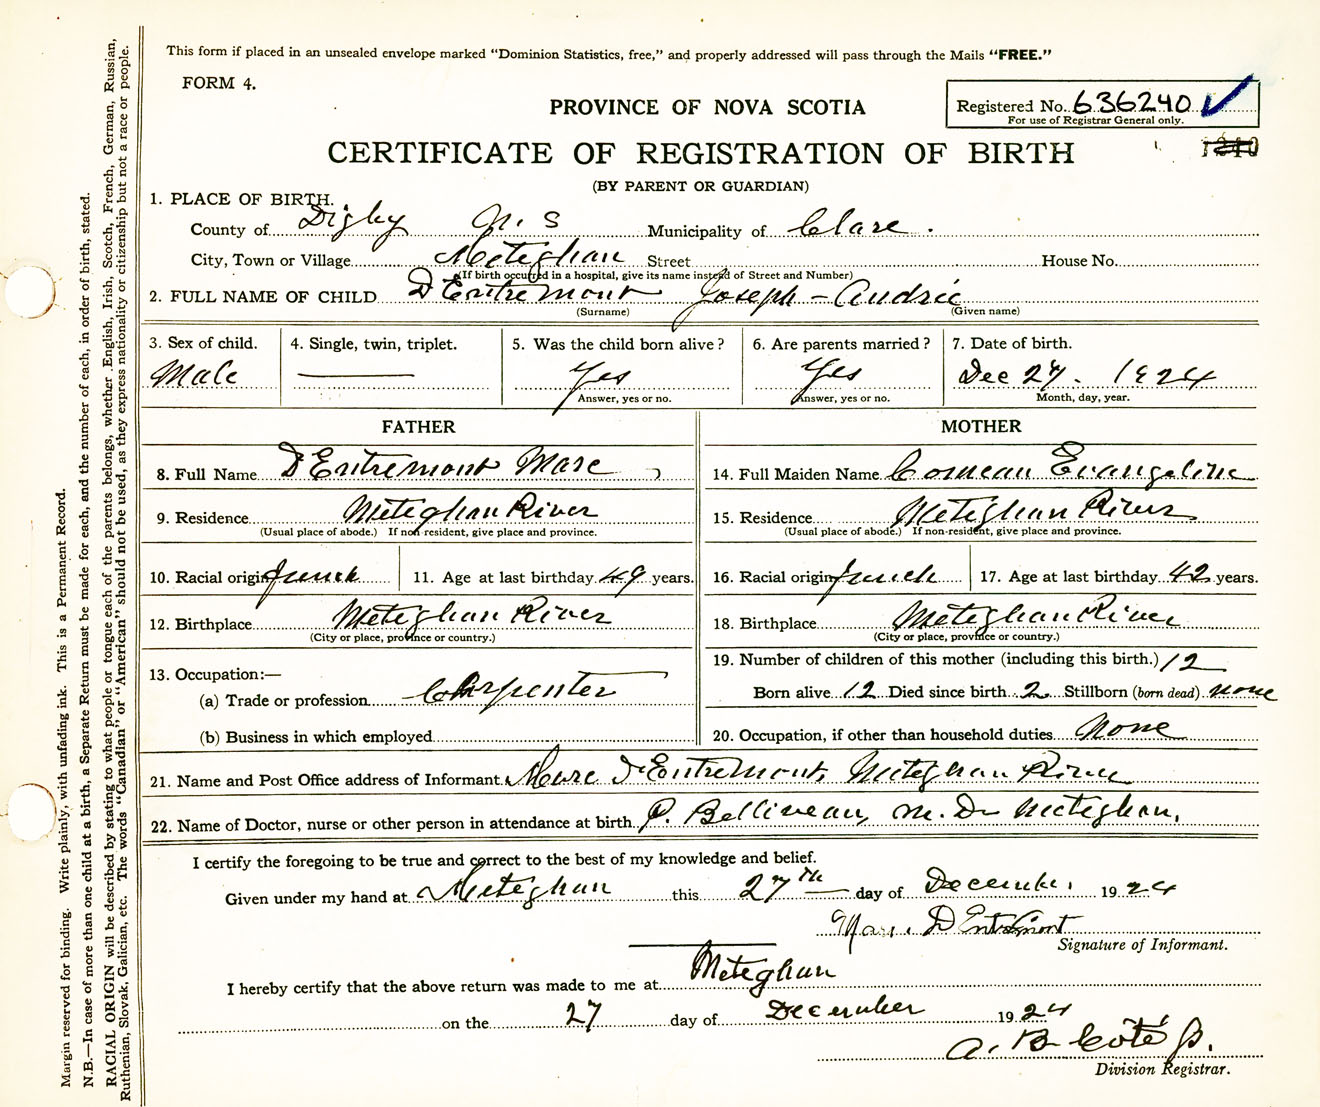 This form if placed in an unsealed envelope marked “Dominion Statistics, free,” and properly addressed will pass through the Mails “FREE.”
FORM 4.
PROVINCE OF NOVA SCOTIA
Registered No. 636240 ✓
For use of Registrar General only.
CERTIFICATE OF REGISTRATION OF BIRTH
(BY PARENT OR GUARDIAN)
1. PLACE OF BIRTH.
County of Digby N. S Municipality of Clare.
City, Town or Village Meteghan Street House No.
(If birth occurred in a hospital, give its name instead of Street and Number)
2. FULL NAME OF CHILD D'Entremont Joseph - Audric
(Surname) (Given name)
3. Sex of child. 4. Single, twin, triplet. 5. Was the child born alive? 6. Are parents married? 7. Date of birth.
Male — Yes Yes Dec 27. 1924
Answer, yes or no. Answer, yes or no. Month, day, year.
FATHER MOTHER
8. Full Name D'Entremont Marc 14. Full Maiden Name Comeau Evangeline
9. Residence Meteghan River 15. Residence Meteghan River
(Usual place of abode.) If non-resident, give place and province. (Usual place of abode.) If non-resident, give place and province.
10. Racial origin french 11. Age at last birthday 49 years. 16. Racial origin french 17. Age at last birthday 42 years.
12. Birthplace Meteghan River 18. Birthplace Meteghan River
(City or place, province or country.) (City or place, province or country.)
13. Occupation:— 19. Number of children of this mother (including this birth.) 12
(a) Trade or profession Carpenter Born alive 12 Died since birth 2 Stillborn (born dead) none
(b) Business in which employed 20. Occupation, if other than household duties None
21. Name and Post Office address of Informant. Marc D'Entremont, Meteghan River
22. Name of Doctor, nurse or other person in attendance at birth. P. Belliveau, M. D. Meteghan.
I certify the foregoing to be true and correct to the best of my knowledge and belief.
Given under my hand at Meteghan this 27th day of December, 1924
Marc D'Entremont
Signature of Informant.
I hereby certify that the above return was made to me at Meteghan
on the 27 day of December 1924
A. B. Coté Jr.
Division Registrar.
Margin reserved for binding. Write plainly, with unfading ink. This is a Permanent Record.
N.B.—In case of more than one child at a birth, a Separate Return must be made for each, and the number of each, in order of birth, stated.
RACIAL ORIGIN will be described by stating to what people or tongue each of the parents belongs, whether English, Irish, Scotch, French, German, Russian,
Ruthenian, Slovak, Galician, etc. The words “Canadian” or “American” should not be used, as they express nationality or citizenship but not a race or people.